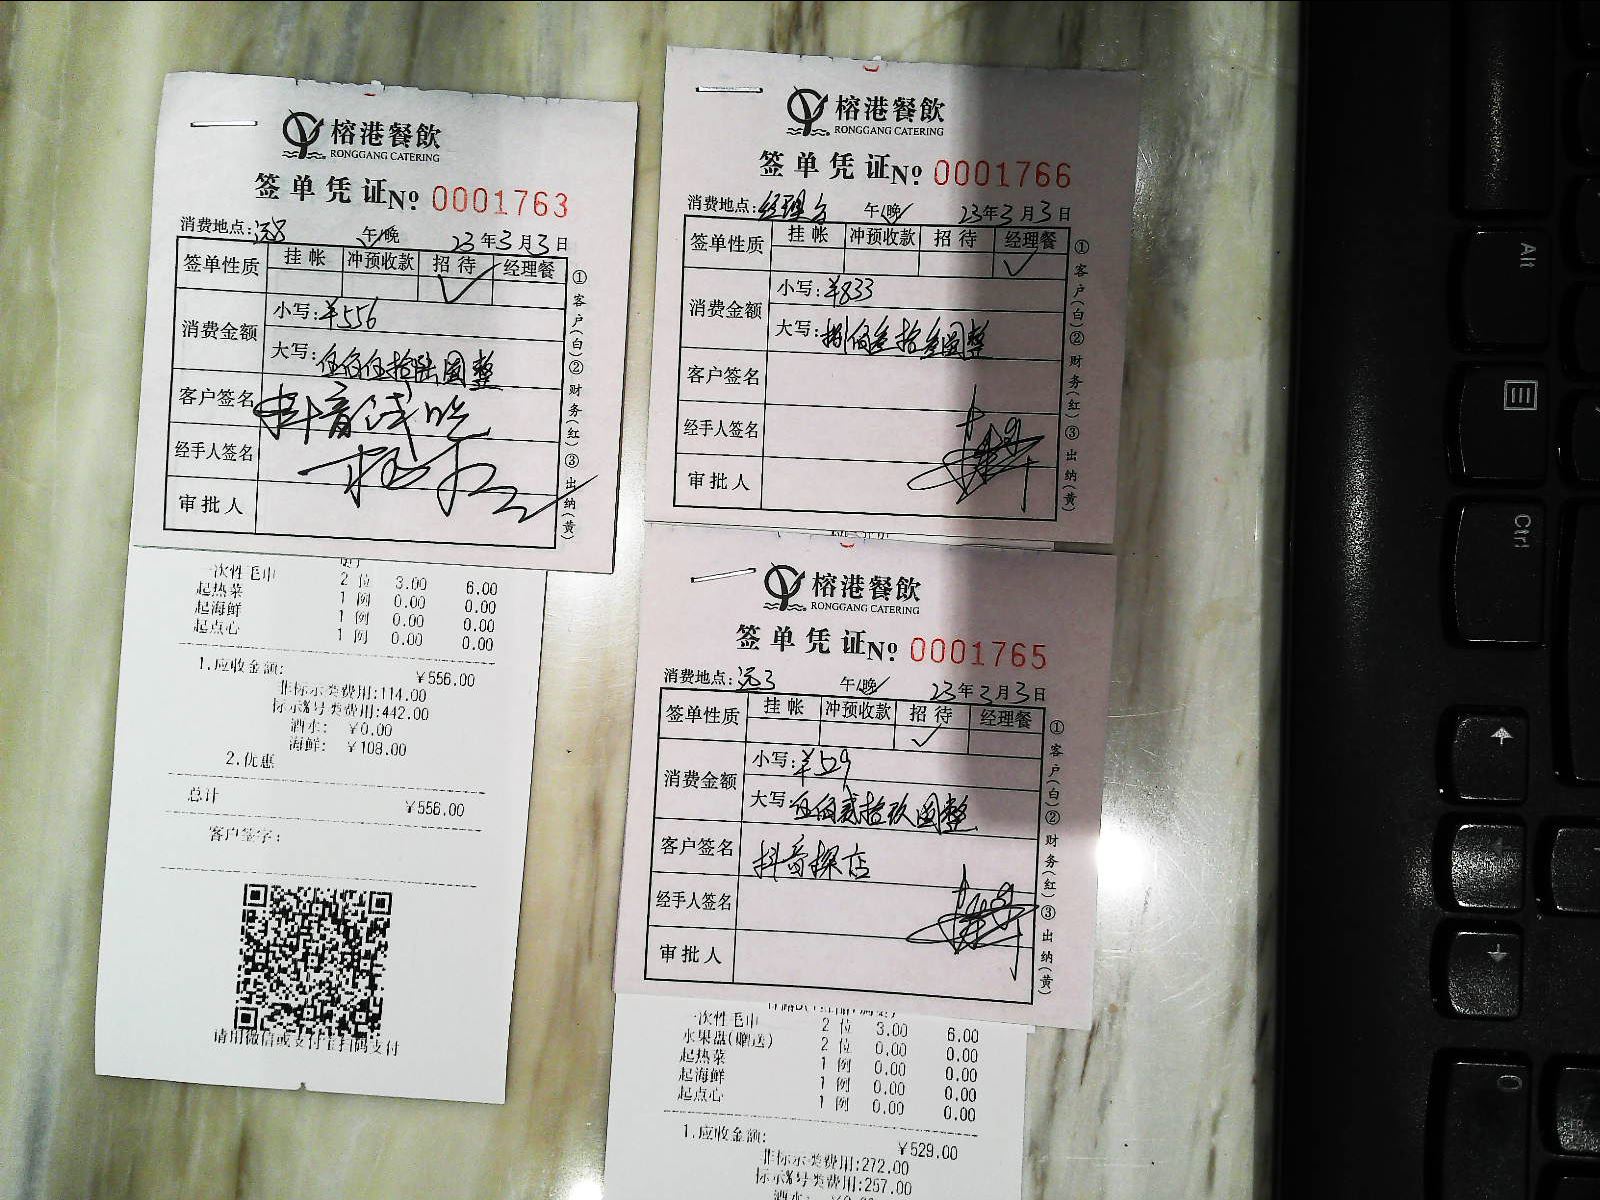 榕港餐飲
RONGGANG CATERING
签单凭证№ 0001763
消费地点: 午/晚 23年3月3日
签单性质 挂帐 冲预收款 招待 经理餐
消费金额 小写:¥556
大写:伍佰伍拾陆圆整
客户签名 抖音试吃
经手人签名
审批人
①客户(白)②财务(红)③出纳(黄)
一次性毛巾 2 位 3.00 6.00
起热菜 1 例 0.00 0.00
起海鲜 1 例 0.00 0.00
起点心 1 例 0.00 0.00
1.应收金额: ¥556.00
非标示类费用:114.00
标示%号类费用:442.00
酒水: ¥0.00
海鲜: ¥108.00
2.优惠
总计 ¥556.00
客户签字:
请用微信或支付宝扫码支付
榕港餐飲
RONGGANG CATERING
签单凭证№ 0001766
消费地点:经理台 午/晚 23年3月3日
签单性质 挂帐 冲预收款 招待 经理餐
消费金额 小写:¥833
大写:捌佰叁拾叁圆整
客户签名
经手人签名
审批人
①客户(白)②财务(红)③出纳(黄)
榕港餐飲
RONGGANG CATERING
签单凭证№ 0001765
消费地点: 午/晚 23年3月3日
签单性质 挂帐 冲预收款 招待 经理餐
消费金额 小写:¥529
大写:伍佰贰拾玖圆整
客户签名 抖音探店
经手人签名
审批人
①客户(白)②财务(红)③出纳(黄)
一次性毛巾 2 位 3.00 6.00
水果盘(赠送) 2 位 0.00 0.00
起热菜 1 例 0.00 0.00
起海鲜 1 例 0.00 0.00
起点心 1 例 0.00 0.00
1.应收金额: ¥529.00
非标示类费用:272.00
标示%号类费用:257.00
Alt
Ctrl
0